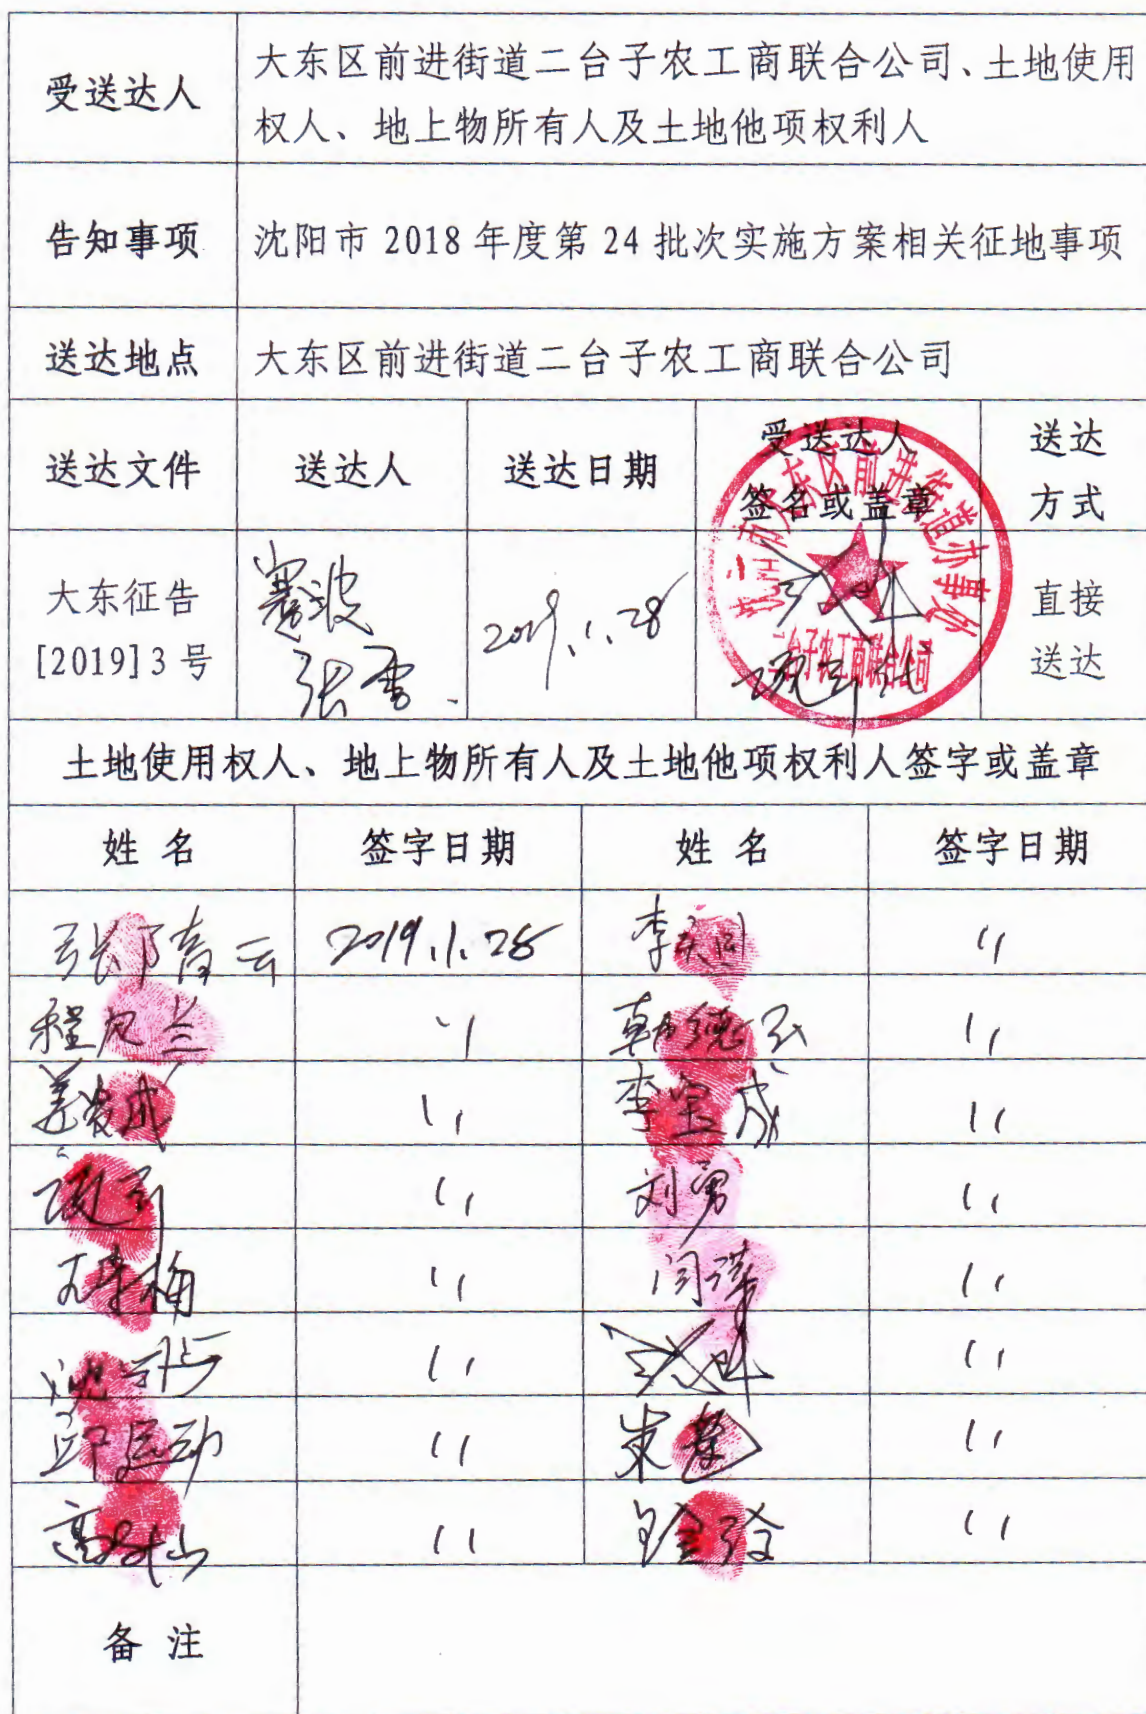 受送达人
大东区前进街道二台子农工商联合公司、土地使用
权人、地上物所有人及土地他项权利人
告知事项
沈阳市 2018 年度第 24 批次实施方案相关征地事项
送达地点
大东区前进街道二台子农工商联合公司
送达文件 送达人 送达日期 受送达人 签名或盖章 送达 方式
大东征告
[2019]3 号
张雪
2019.1.28
沈阳市大东区前进街道办事处
二台子农工商联合公司
直接
送达
土地使用权人、地上物所有人及土地他项权利人签字或盖章
姓 名 签字日期 姓 名 签字日期
2019.1.28 〃
程凤兰 〃 韩德玉 〃
姜俊成 〃 李宝成 〃
〃 刘勇 〃
〃 闫萍 〃
〃 〃
邱运动 〃 〃
〃 〃
备 注